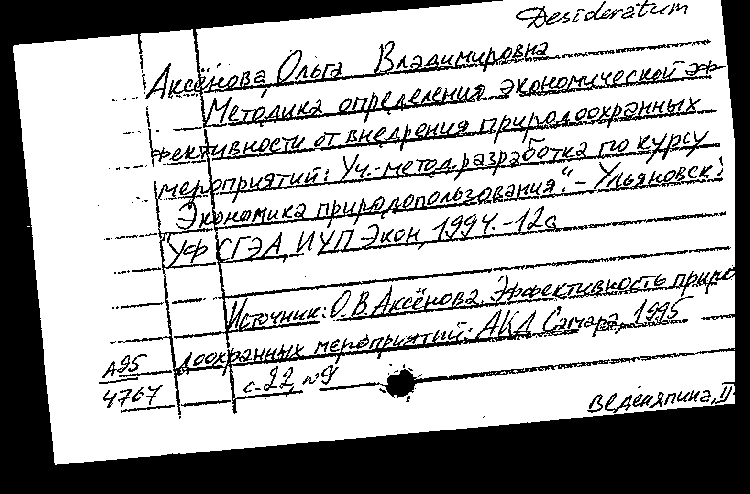 Desideratum
Аксёнова, Ольга Владимировна
Методика определения экономической эф-
фективности от внедрения природоохранных
мероприятий: Уч.-метод.разработка по курсу
"Экономика природопользования". – Ульяновск:
УФ СГЭА, ИУП Экон, 1994. - 12с
Источник: О.В Аксёнова. Эффективность приро
доохранных мероприятий. АКД Самара, 1995
А95 с.22, №9
4767
Веденяпина, II